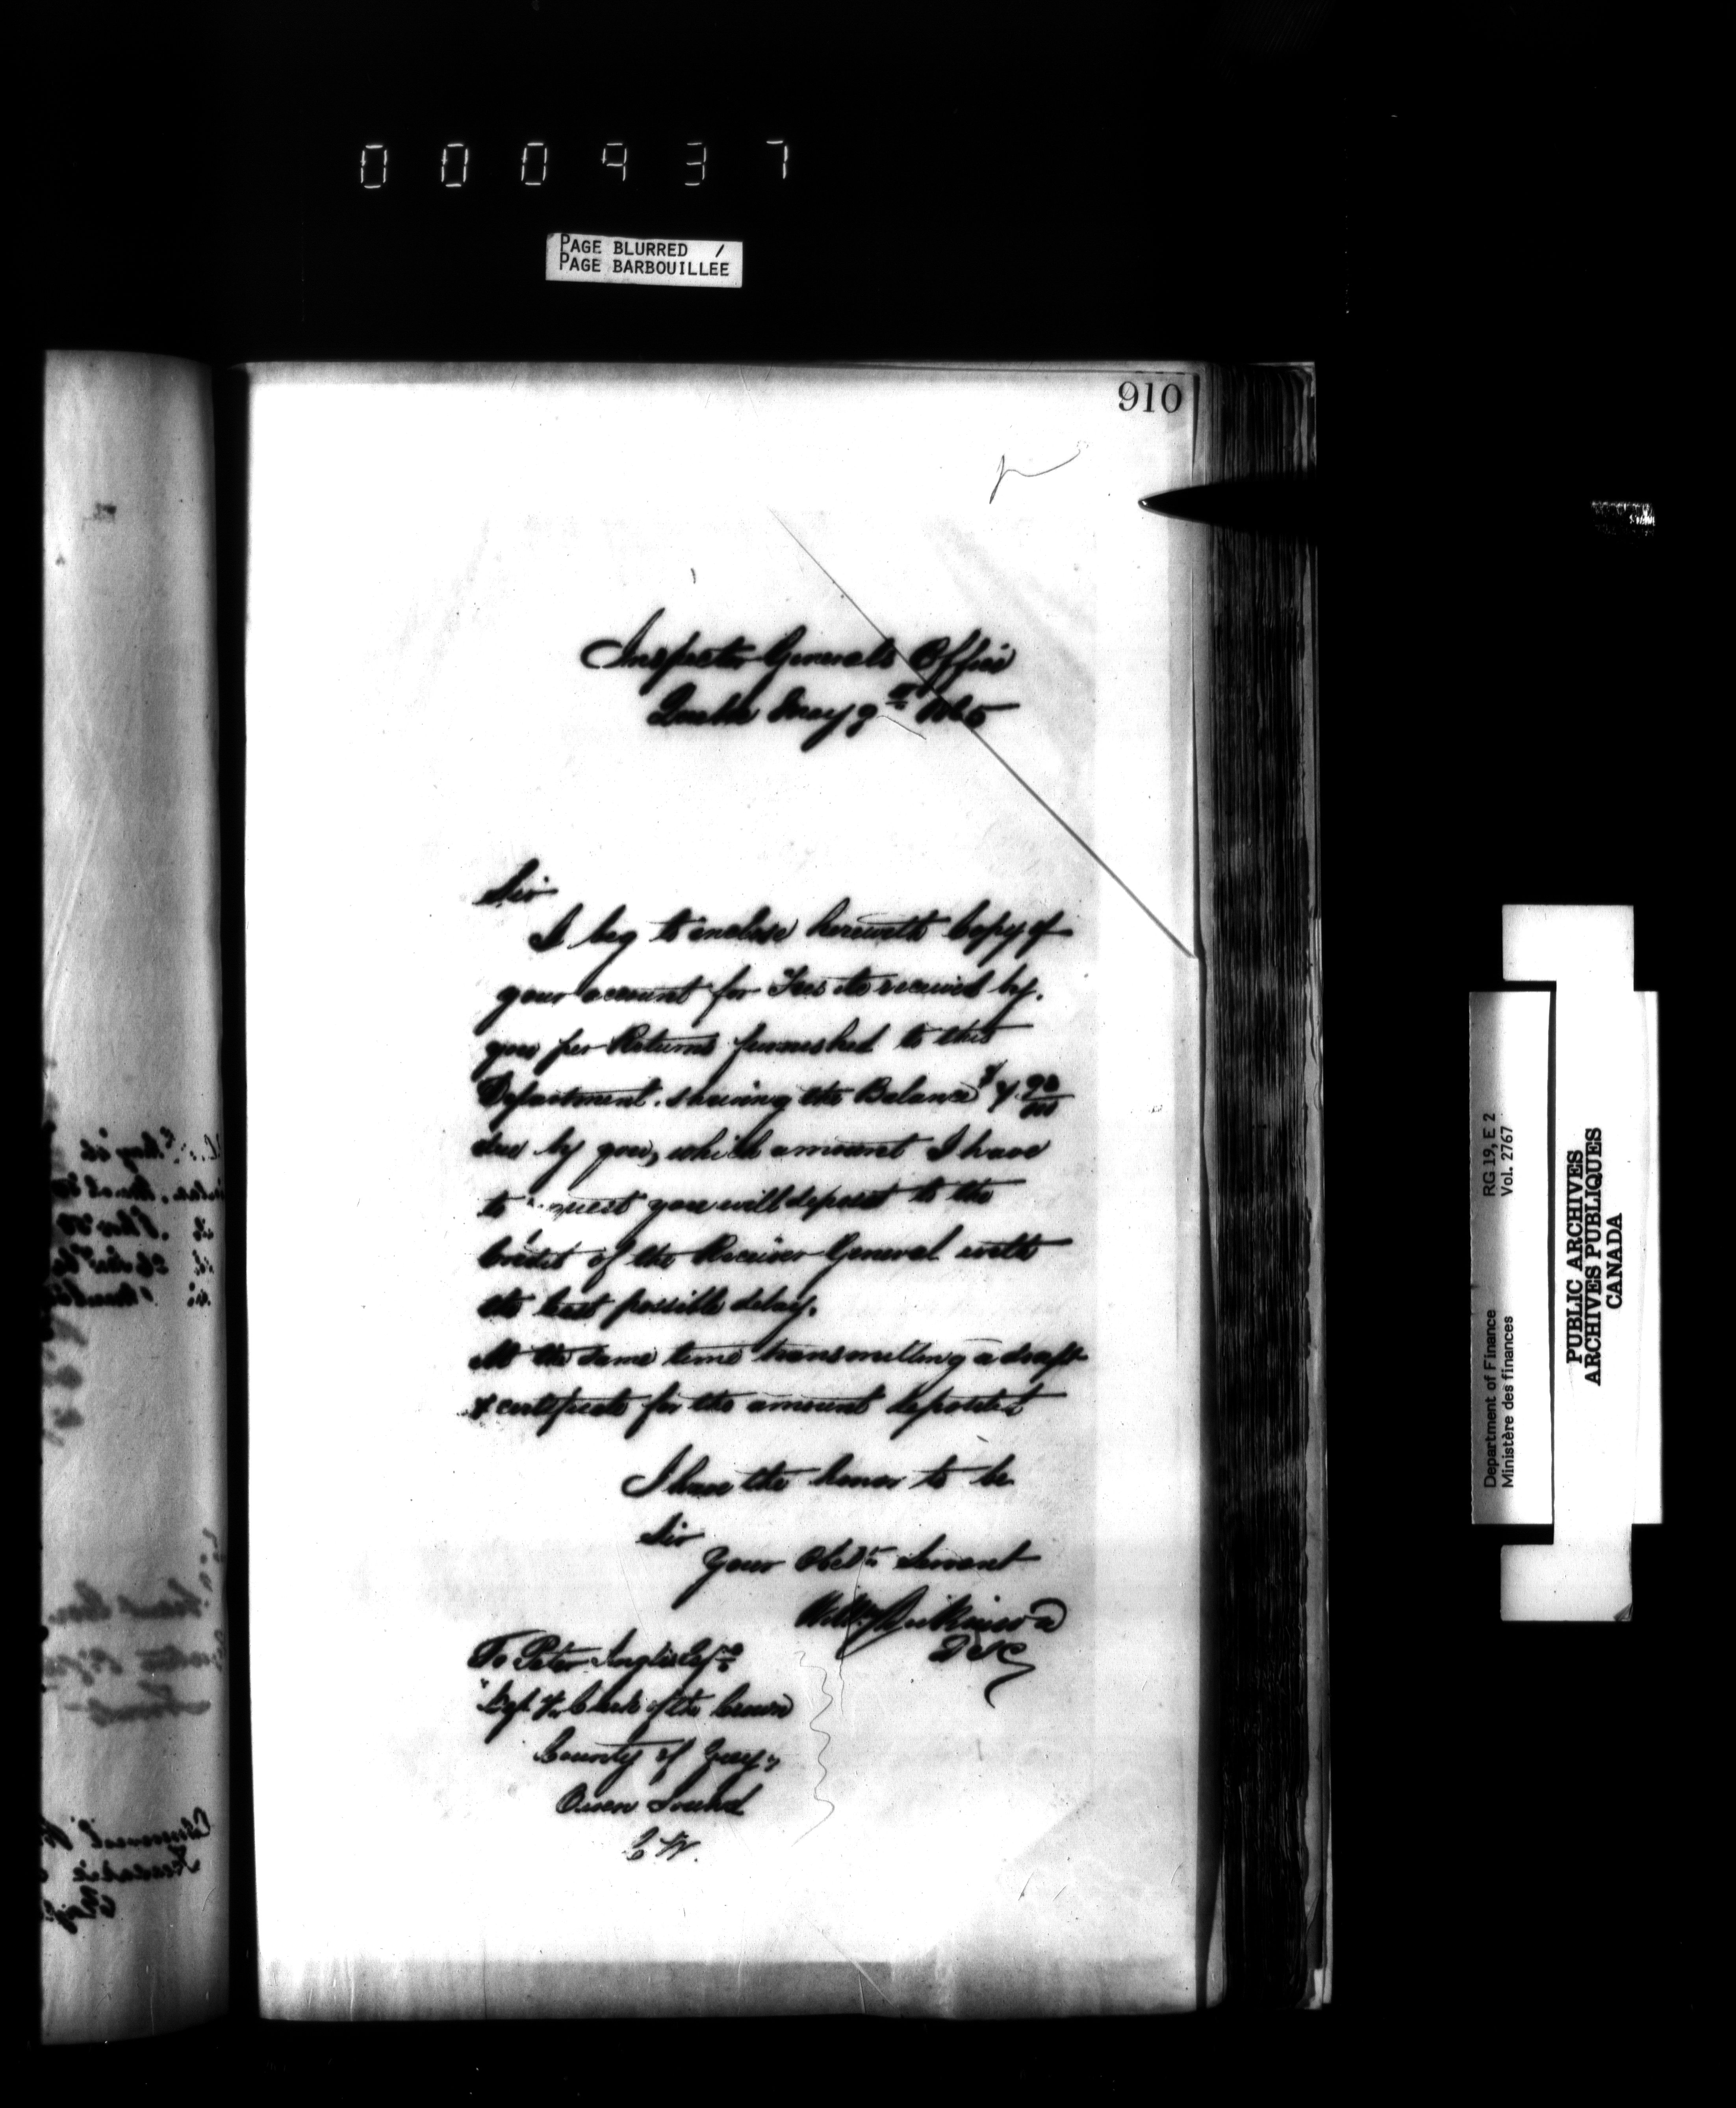 000937
PAGE BLURRED /
PAGE BARBOUILLEE
910
Inspector Generals Office
Quebec May 9th 1865
Sir
I beg to enclose herewith Copy of
your account for Fees etc received by
you per Returns furnished to this
Department. shewing the Balance $
due by you, which amount I have
to request you will deposit to the
Credit of the Receiver General with
the least possible delay.
At the same time transmitting a draft
& certificate for the amount deposited
I have the honor to be
Sir
Your Obedt Servant
Wm Dickinson
To Peter Inglis Esqr
Dept Clerk of the Crown
County of Grey
Owen Sound
C W.
Department of Finance RG 19, E 2
Ministère des finances Vol. 2767
PUBLIC ARCHIVES
ARCHIVES PUBLIQUES
CANADA